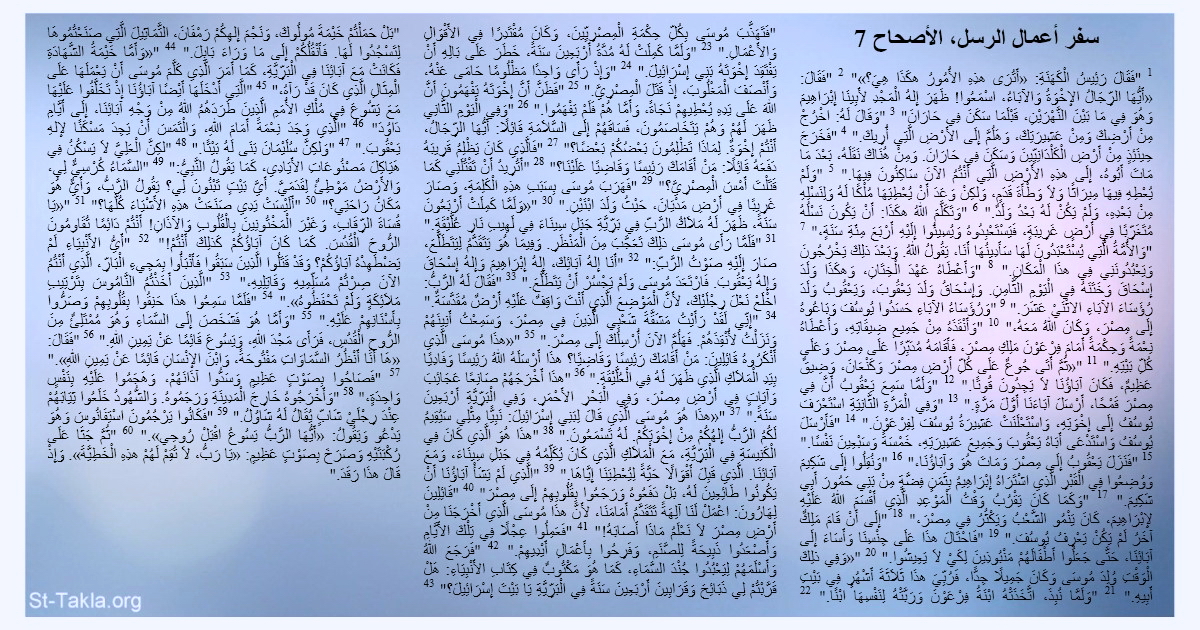 سفر أعمال الرسل، الأصحاح 7
1 "فَقَالَ رَئِيسُ الْكَهَنَةِ: «أَتُرَى هذِهِ الأُمُورُ هكَذَا هِيَ؟»" 2 "فَقَالَ:
«أَيُّهَا الرِّجَالُ الإِخْوَةُ وَالآبَاءُ، اسْمَعُوا! ظَهَرَ إِلهُ الْمَجْدِ لأَبِينَا إِبْرَاهِيمَ
وَهُوَ فِي مَا بَيْنَ النَّهْرَيْنِ، قَبْلَمَا سَكَنَ فِي حَارَانَ" 3 "وَقَالَ لَهُ: اخْرُجْ
مِنْ أَرْضِكَ وَمِنْ عَشِيرَتِكَ، وَهَلُمَّ إِلَى الأَرْضِ الَّتِي أُرِيكَ." 4 "فَخَرَجَ
حِينَئِذٍ مِنْ أَرْضِ الْكَلْدَانِيِّينَ وَسَكَنَ فِي حَارَانَ. وَمِنْ هُنَاكَ نَقَلَهُ، بَعْدَ مَا
مَاتَ أَبُوهُ، إِلَى هذِهِ الأَرْضِ الَّتِي أَنْتُمُ الآنَ سَاكِنُونَ فِيهَا." 5 "وَلَمْ
يُعْطِهِ فِيهَا مِيرَاثًا وَلاَ وَطْأَةَ قَدَمٍ، وَلكِنْ وَعَدَ أَنْ يُعْطِيَهَا مُلْكًا لَهُ وَلِنَسْلِهِ
مِنْ بَعْدِهِ، وَلَمْ يَكُنْ لَهُ بَعْدُ وَلَدٌ." 6 "وَتَكَلَّمَ اللهُ هكَذَا: أَنْ يَكُونَ نَسْلُهُ
مُتَغَرِّبًا فِي أَرْضٍ غَرِيبَةٍ، فَيَسْتَعْبِدُوهُ وَيُسِيئُوا إِلَيْهِ أَرْبَعَ مِئَةِ سَنَةٍ،" 7
"وَالأُمَّةُ الَّتِي يُسْتَعْبَدُونَ لَهَا سَأَدِينُهَا أَنَا، يَقُولُ اللهُ. وَبَعْدَ ذلِكَ يَخْرُجُونَ
وَيَعْبُدُونَنِي فِي هذَا الْمَكَانِ." 8 "وَأَعْطَاهُ عَهْدَ الْخِتَانِ، وَهكَذَا وَلَدَ
إِسْحَاقَ وَخَتَنَهُ فِي الْيَوْمِ الثَّامِنِ. وَإِسْحَاقُ وَلَدَ يَعْقُوبَ، وَيَعْقُوبُ وَلَدَ
رُؤَسَاءَ الآبَاءِ الاثْنَيْ عَشَرَ." 9 "وَرُؤَسَاءُ الآبَاءِ حَسَدُوا يُوسُفَ وَبَاعُوهُ
إِلَى مِصْرَ، وَكَانَ اللهُ مَعَهُ،" 10 "وَأَنْقَذَهُ مِنْ جَمِيعِ ضِيقَاتِهِ، وَأَعْطَاهُ
نِعْمَةً وَحِكْمَةً أَمَامَ فِرْعَوْنَ مَلِكِ مِصْرَ، فَأَقَامَهُ مُدَبِّرًا عَلَى مِصْرَ وَعَلَى
كُلِّ بَيْتِهِ." 11 «ثُمَّ أَتَى جُوعٌ عَلَى كُلِّ أَرْضِ مِصْرَ وَكَنْعَانَ، وَضِيقٌ
عَظِيمٌ، فَكَانَ آبَاؤُنَا لاَ يَجِدُونَ قُوتًا." 12 "وَلَمَّا سَمِعَ يَعْقُوبُ أَنَّ فِي
مِصْرَ قَمْحًا، أَرْسَلَ آبَاءَنَا أَوَّلَ مَرَّةٍ." 13 "وَفِي الْمَرَّةِ الثَّانِيَةِ اسْتَعْرَفَ
يُوسُفُ إِلَى إِخْوَتِهِ، وَاسْتَعْلَنَتْ عَشِيرَةُ يُوسُفَ لِفِرْعَوْنَ." 14 "فَأَرْسَلَ
يُوسُفُ وَاسْتَدْعَى أَبَاهُ يَعْقُوبَ وَجَمِيعَ عَشِيرَتِهِ، خَمْسَةً وَسَبْعِينَ نَفْسًا."
15 "فَنَزَلَ يَعْقُوبُ إِلَى مِصْرَ وَمَاتَ هُوَ وَآبَاؤُنَا،" 16 "وَنُقِلُوا إِلَى شَكِيمَ
وَوُضِعُوا فِي الْقَبْرِ الَّذِي اشْتَرَاهُ إِبْرَاهِيمُ بِثَمَنٍ فِضَّةٍ مِنْ بَنِي حَمُورَ أَبِي
شَكِيمَ." 17 "وَكَمَا كَانَ يَقْرُبُ وَقْتُ الْمَوْعِدِ الَّذِي أَقْسَمَ اللهُ عَلَيْهِ
لإِبْرَاهِيمَ، كَانَ يَنْمُو الشَّعْبُ وَيَكْثُرُ فِي مِصْرَ،" 18 "إِلَى أَنْ قَامَ مَلِكٌ
آخَرُ لَمْ يَكُنْ يَعْرِفُ يُوسُفَ." 19 "فَاحْتَالَ هذَا عَلَى جِنْسِنَا وَأَسَاءَ إِلَى
آبَائِنَا، حَتَّى جَعَلُوا أَطْفَالَهُمْ مَنْبُوذِينَ لِكَيْ لاَ يَعِيشُوا." 20 "«وَفِي ذلِكَ
الْوَقْتِ وُلِدَ مُوسَى وَكَانَ جَمِيلاً جِدًّا، فَرُبِّيَ هذَا ثَلاَثَةَ أَشْهُرٍ فِي بَيْتِ
أَبِيهِ." 21 "وَلَمَّا نُبِذَ، اتَّخَذَتْهُ ابْنَةُ فِرْعَوْنَ وَرَبَّتْهُ لِنَفْسِهَا ابْنًا." 22
"فَتَهَذَّبَ مُوسَى بِكُلِّ حِكْمَةِ الْمِصْرِيِّينَ، وَكَانَ مُقْتَدِرًا فِي الأَقْوَالِ
وَالأَعْمَالِ." 23 "وَلَمَّا كَمِلَتْ لَهُ مُدَّةُ أَرْبَعِينَ سَنَةً، خَطَرَ عَلَى بَالِهِ أَنْ
يَفْتَقِدَ إِخْوَتَهُ بَنِي إِسْرَائِيلَ." 24 "وَإِذْ رَأَى وَاحِدًا مَظْلُومًا حَامَى عَنْهُ،
وَأَنْصَفَ الْمَغْلُوبَ، إِذْ قَتَلَ الْمِصْرِيَّ." 25 "فَظَنَّ أَنَّ إِخْوَتَهُ يَفْهَمُونَ أَنَّ
اللهَ عَلَى يَدِهِ يُعْطِيهِمْ نَجَاةً، وَأَمَّا هُمْ فَلَمْ يَفْهَمُوا." 26 "وَفِي الْيَوْمِ الثَّانِي
ظَهَرَ لَهُمْ وَهُمْ يَتَخَاصَمُونَ، فَسَاقَهُمْ إِلَى السَّلاَمَةِ قَائِلاً: أَيُّهَا الرِّجَالُ،
أَنْتُمْ إِخْوَةٌ. لِمَاذَا تَظْلِمُونَ بَعْضُكُمْ بَعْضًا؟" 27 "فَالَّذِي كَانَ يَظْلِمُ قَرِيبَهُ
دَفَعَهُ قَائِلاً: مَنْ أَقَامَكَ رَئِيسًا وَقَاضِيًا عَلَيْنَا؟" 28 "أَتُرِيدُ أَنْ تَقْتُلَنِي كَمَا
قَتَلْتَ أَمْسَ الْمِصْرِيَّ؟" 29 "فَهَرَبَ مُوسَى بِسَبَبِ هذِهِ الْكَلِمَةِ، وَصَارَ
غَرِيبًا فِي أَرْضِ مَدْيَانَ، حَيْثُ وَلَدَ ابْنَيْنِ." 30 "«وَلَمَّا كَمِلَتْ أَرْبَعُونَ
سَنَةً، ظَهَرَ لَهُ مَلاَكُ الرَّبِّ فِي بَرِّيَّةِ جَبَلِ سِينَاءَ فِي لَهِيبِ نَارِ عُلَّيْقَةٍ."
31 "فَلَمَّا رَأَى مُوسَى ذلِكَ تَعَجَّبَ مِنَ الْمَنْظَرِ. وَفِيمَا هُوَ يَتَقَدَّمُ لِيَتَطَلَّعَ،
صَارَ إِلَيْهِ صَوْتُ الرَّبِّ:" 32 "أَنَا إِلهُ آبَائِكَ، إِلهُ إِبْرَاهِيمَ وَإِلهُ إِسْحَاقَ
وَإِلهُ يَعْقُوبَ. فَارْتَعَدَ مُوسَى وَلَمْ يَجْسُرْ أَنْ يَتَطَلَّعَ." 33 "فَقَالَ لَهُ الرَّبُّ:
اخْلَعْ نَعْلَ رِجْلَيْكَ، لأَنَّ الْمَوْضِعَ الَّذِي أَنْتَ وَاقِفٌ عَلَيْهِ أَرْضٌ مُقَدَّسَةٌ."
34 "إِنِّي لَقَدْ رَأَيْتُ مَشَقَّةَ شَعْبِي الَّذِينَ فِي مِصْرَ، وَسَمِعْتُ أَنِينَهُمْ
وَنَزَلْتُ لأُنْقِذَهُمْ. فَهَلُمَّ الآنَ أُرْسِلُكَ إِلَى مِصْرَ." 35 "«هذَا مُوسَى الَّذِي
أَنْكَرُوهُ قَائِلِينَ: مَنْ أَقَامَكَ رَئِيسًا وَقَاضِيًا؟ هذَا أَرْسَلَهُ اللهُ رَئِيسًا وَفَادِيًا
بِيَدِ الْمَلاَكِ الَّذِي ظَهَرَ لَهُ فِي الْعُلَّيْقَةِ." 36 "هذَا أَخْرَجَهُمْ صَانِعًا عَجَائِبَ
وَآيَاتٍ فِي أَرْضِ مِصْرَ، وَفِي الْبَحْرِ الأَحْمَرِ، وَفِي الْبَرِّيَّةِ أَرْبَعِينَ
سَنَةً." 37 "«هذَا هُوَ مُوسَى الَّذِي قَالَ لِبَنِي إِسْرَائِيلَ: نَبِيًّا مِثْلِي سَيُقِيمُ
لَكُمُ الرَّبُّ إِلهُكُمْ مِنْ إِخْوَتِكُمْ. لَهُ تَسْمَعُونَ." 38 "هذَا هُوَ الَّذِي كَانَ فِي
الْكَنِيسَةِ فِي الْبَرِّيَّةِ، مَعَ الْمَلاَكِ الَّذِي كَانَ يُكَلِّمُهُ فِي جَبَلِ سِينَاءَ، وَمَعَ
آبَائِنَا. الَّذِي قَبِلَ أَقْوَالاً حَيَّةً لِيُعْطِيَنَا إِيَّاهَا." 39 "الَّذِي لَمْ يَشَأْ آبَاؤُنَا أَنْ
يَكُونُوا طَائِعِينَ لَهُ، بَلْ دَفَعُوهُ وَرَجَعُوا بِقُلُوبِهِمْ إِلَى مِصْرَ" 40 "قَائِلِينَ
لِهَارُونَ: اعْمَلْ لَنَا آلِهَةً تَتَقَدَّمُ أَمَامَنَا، لأَنَّ هذَا مُوسَى الَّذِي أَخْرَجَنَا مِنْ
أَرْضِ مِصْرَ لاَ نَعْلَمُ مَاذَا أَصَابَهُ!" 41 "فَعَمِلُوا عِجْلاً فِي تِلْكَ الأَيَّامِ
وَأَصْعَدُوا ذَبِيحَةً لِلصَّنَمِ، وَفَرِحُوا بِأَعْمَالِ أَيْدِيهِمْ." 42 "فَرَجَعَ اللهُ
وَأَسْلَمَهُمْ لِيَعْبُدُوا جُنْدَ السَّمَاءِ، كَمَا هُوَ مَكْتُوبٌ فِي كِتَابِ الأَنْبِيَاءِ: هَلْ
قَرَّبْتُمْ لِي ذَبَائِحَ وَقَرَابِينَ أَرْبَعِينَ سَنَةً فِي الْبَرِّيَّةِ يَا بَيْتَ إِسْرَائِيلَ؟" 43
"بَلْ حَمَلْتُمْ خَيْمَةَ مُولُوكَ، وَنَجْمَ إِلهِكُمْ رَمْفَانَ، التَّمَاثِيلَ الَّتِي صَنَعْتُمُوهَا
لِتَسْجُدُوا لَهَا. فَأَنْقُلُكُمْ إِلَى مَا وَرَاءَ بَابِلَ." 44 "«وَأَمَّا خَيْمَةُ الشَّهَادَةِ
فَكَانَتْ مَعَ آبَائِنَا فِي الْبَرِّيَّةِ، كَمَا أَمَرَ الَّذِي كَلَّمَ مُوسَى أَنْ يَعْمَلَهَا عَلَى
الْمِثَالِ الَّذِي كَانَ قَدْ رَآهُ،" 45 "الَّتِي أَدْخَلَهَا أَيْضًا آبَاؤُنَا إِذْ تَخَلَّفُوا عَلَيْهَا
مَعَ يَشُوعَ فِي مُلْكِ الأُمَمِ الَّذِينَ طَرَدَهُمُ اللهُ مِنْ وَجْهِ آبَائِنَا، إِلَى أَيَّامِ
دَاوُدَ" 46 "الَّذِي وَجَدَ نِعْمَةً أَمَامَ اللهِ، وَالْتَمَسَ أَنْ يَجِدَ مَسْكَنًا لإِلهِ
يَعْقُوبَ." 47 "وَلكِنَّ سُلَيْمَانَ بَنَى لَهُ بَيْتًا." 48 "لكِنَّ الْعَلِيَّ لاَ يَسْكُنُ فِي
هَيَاكِلَ مَصْنُوعَاتِ الأَيَادِي، كَمَا يَقُولُ النَّبِيُّ:" 49 "السَّمَاءُ كُرْسِيٌّ لِي،
وَالأَرْضُ مَوْطِئٌ لِقَدَمَيَّ. أَيَّ بَيْتٍ تَبْنُونَ لِي؟ يَقُولُ الرَّبُّ، وَأَيٌّ هُوَ
مَكَانُ رَاحَتِي؟" 50 "أَلَيْسَتْ يَدِي صَنَعَتْ هذِهِ الأَشْيَاءَ كُلَّهَا؟" 51 "«يَا
قُسَاةَ الرِّقَابِ، وَغَيْرَ الْمَخْتُونِينَ بِالْقُلُوبِ وَالآذَانِ! أَنْتُمْ دَائِمًا تُقَاوِمُونَ
الرُّوحَ الْقُدُسَ. كَمَا كَانَ آبَاؤُكُمْ كَذلِكَ أَنْتُمْ!" 52 "أَيُّ الأَنْبِيَاءِ لَمْ
يَضْطَهِدْهُ آبَاؤُكُمْ؟ وَقَدْ قَتَلُوا الَّذِينَ سَبَقُوا فَأَنْبَأُوا بِمَجِيءِ الْبَارِّ، الَّذِي أَنْتُمُ
الآنَ صِرْتُمْ مُسَلِّمِيهِ وَقَاتِلِيهِ،" 53 "الَّذِينَ أَخَذْتُمُ النَّامُوسَ بِتَرْتِيبِ
مَلاَئِكَةٍ وَلَمْ تَحْفَظُوهُ»." 54 "فَلَمَّا سَمِعُوا هذَا حَنِقُوا بِقُلُوبِهِمْ وَصَرُّوا
بِأَسْنَانِهِمْ عَلَيْهِ." 55 "وَأَمَّا هُوَ فَشَخَصَ إِلَى السَّمَاءِ وَهُوَ مُمْتَلِئٌ مِنَ
الرُّوحِ الْقُدُسِ، فَرَأَى مَجْدَ اللهِ، وَيَسُوعَ قَائِمًا عَنْ يَمِينِ اللهِ." 56 "فَقَالَ:
«هَا أَنَا أَنْظُرُ السَّمَاوَاتِ مَفْتُوحَةً، وَابْنَ الإِنْسَانِ قَائِمًا عَنْ يَمِينِ اللهِ»."
57 "فَصَاحُوا بِصَوْتٍ عَظِيمٍ وَسَدُّوا آذَانَهُمْ، وَهَجَمُوا عَلَيْهِ بِنَفْسٍ
وَاحِدَةٍ،" 58 "وَأَخْرَجُوهُ خَارِجَ الْمَدِينَةِ وَرَجَمُوهُ. وَالشُّهُودُ خَلَعُوا ثِيَابَهُمْ
عِنْدَ رِجْلَيْ شَابٍّ يُقَالُ لَهُ شَاوُلُ." 59 "فَكَانُوا يَرْجُمُونَ اسْتِفَانُوسَ وَهُوَ
يَدْعُو وَيَقُولُ: «أَيُّهَا الرَّبُّ يَسُوعُ اقْبَلْ رُوحِي»." 60 "ثُمَّ جَثَا عَلَى
رُكْبَتَيْهِ وَصَرَخَ بِصَوْتٍ عَظِيمٍ: «يَا رَبُّ، لاَ تُقِمْ لَهُمْ هذِهِ الْخَطِيَّةَ». وَإِذْ
قَالَ هذَا رَقَدَ."
St-Takla.org